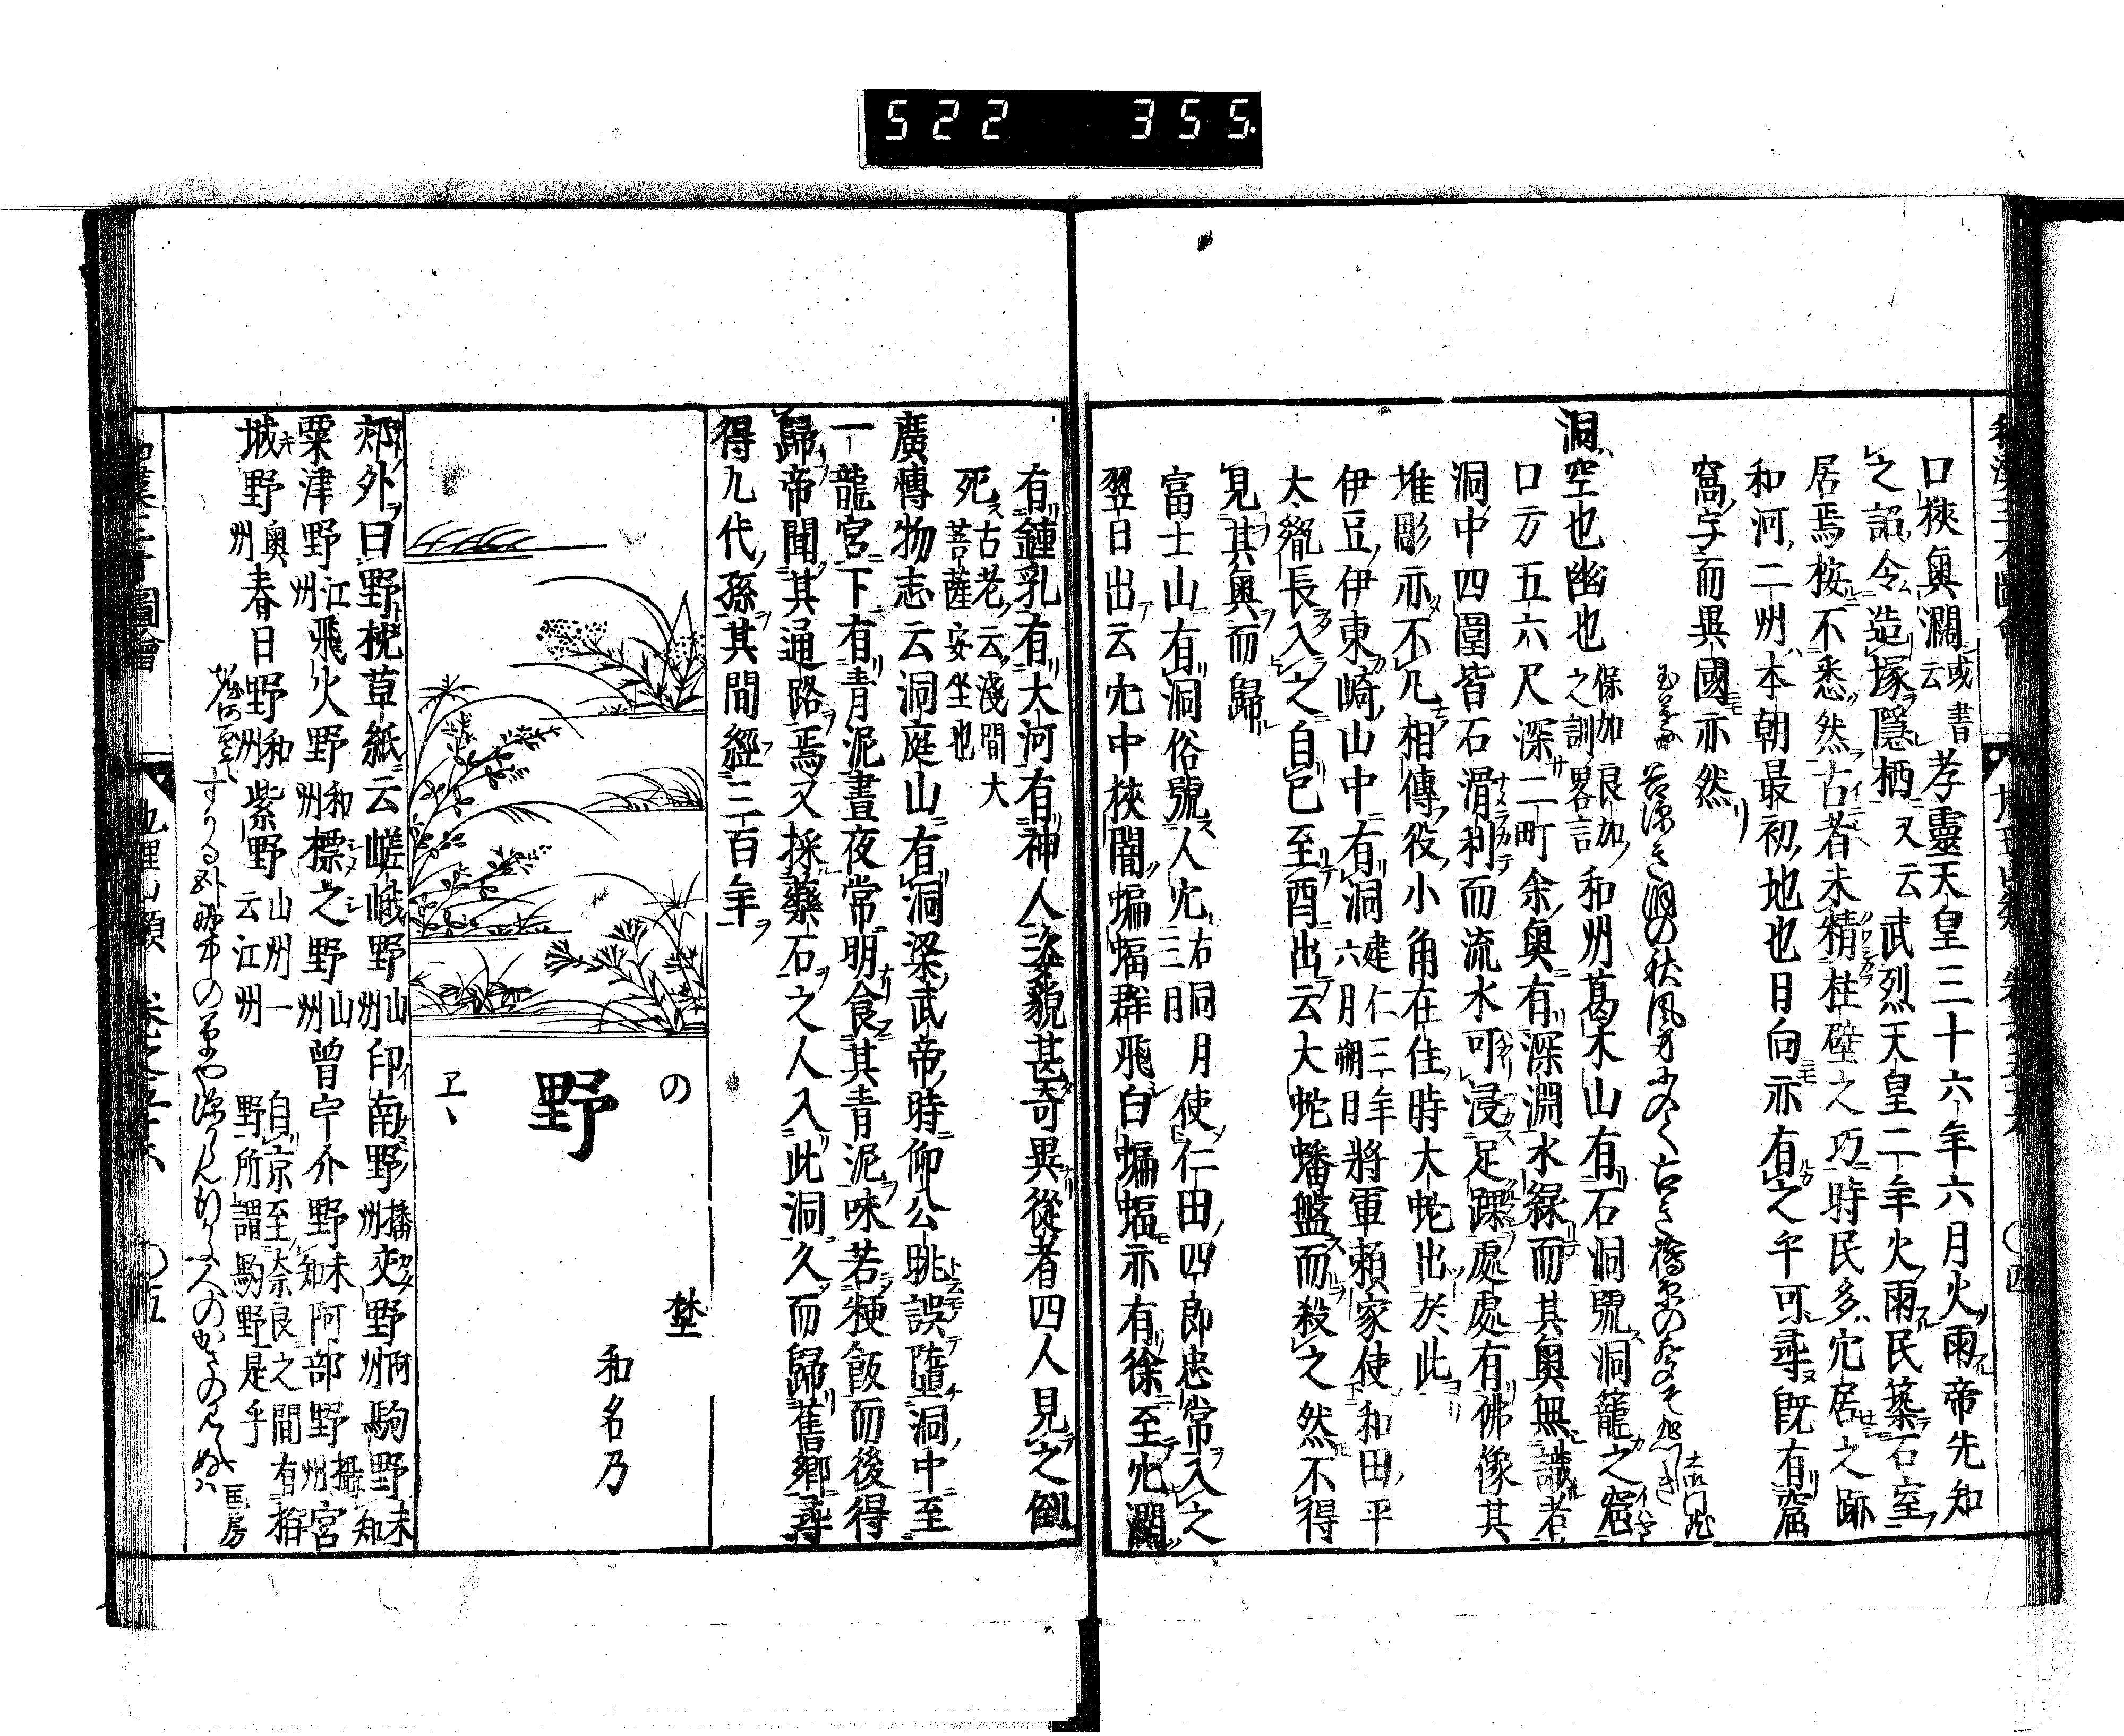 522 355
口狹奧濶或書云孝靈天皇三十六年六月火雨帝先知
之詔令造塚隱栖又云武烈天皇二年火雨民築石室
居焉按不悉然古者未精柱壁之巧時民多穴居之跡
和河二州本朝最初地也日向亦有之乎可尋既有窟
窩字而異國亦然
洞空也幽也保加良加之訓畧言和州葛木山有石洞號洞籠之窟
口方五六尺深二町余奧有深淵水綠而其奧無識者
洞中四圍皆石滑利而流水可浸足踝處處有佛像其
堆彫亦不凡相傳役小角在住時大蛇出於此
伊豆伊東崎山中有洞建仁三年六月朔日將軍賴家使和田平
太胤長入之自巳至酉出云大蛇蟠盤而殺之然不得
見其奧而歸
富士山有洞俗號人穴右同月三日使仁田四郎忠常入之
翌日出云穴中狹闇蝙蝠群飛白蝙蝠亦有徐至穴濶
有鍾乳有大河有神人姿貌甚奇異從者四人見之倒
死古老云淺間大菩薩安坐也
廣愽物志云洞庭山有洞梁武帝時仰公䠷誤墮洞中至
一龍宮下有青泥晝夜常明食其青泥味若粳飯而後得
歸帝聞其通路焉又採藥石之人入此洞久而歸舊鄉尋
得九代孫其間經三百年
の
野
ヱヽ
埜
和名乃
郊外曰野枕草紙云嵯峨野山州印南野播州交野河州駒野未知
粟津野江州飛火野和州標之野山州曾宁介野未知阿部野攝州宮
城野奧州春日野和州紫野山州一云江州自京至奈良之間有狛野所謂駒野是乎
匡房